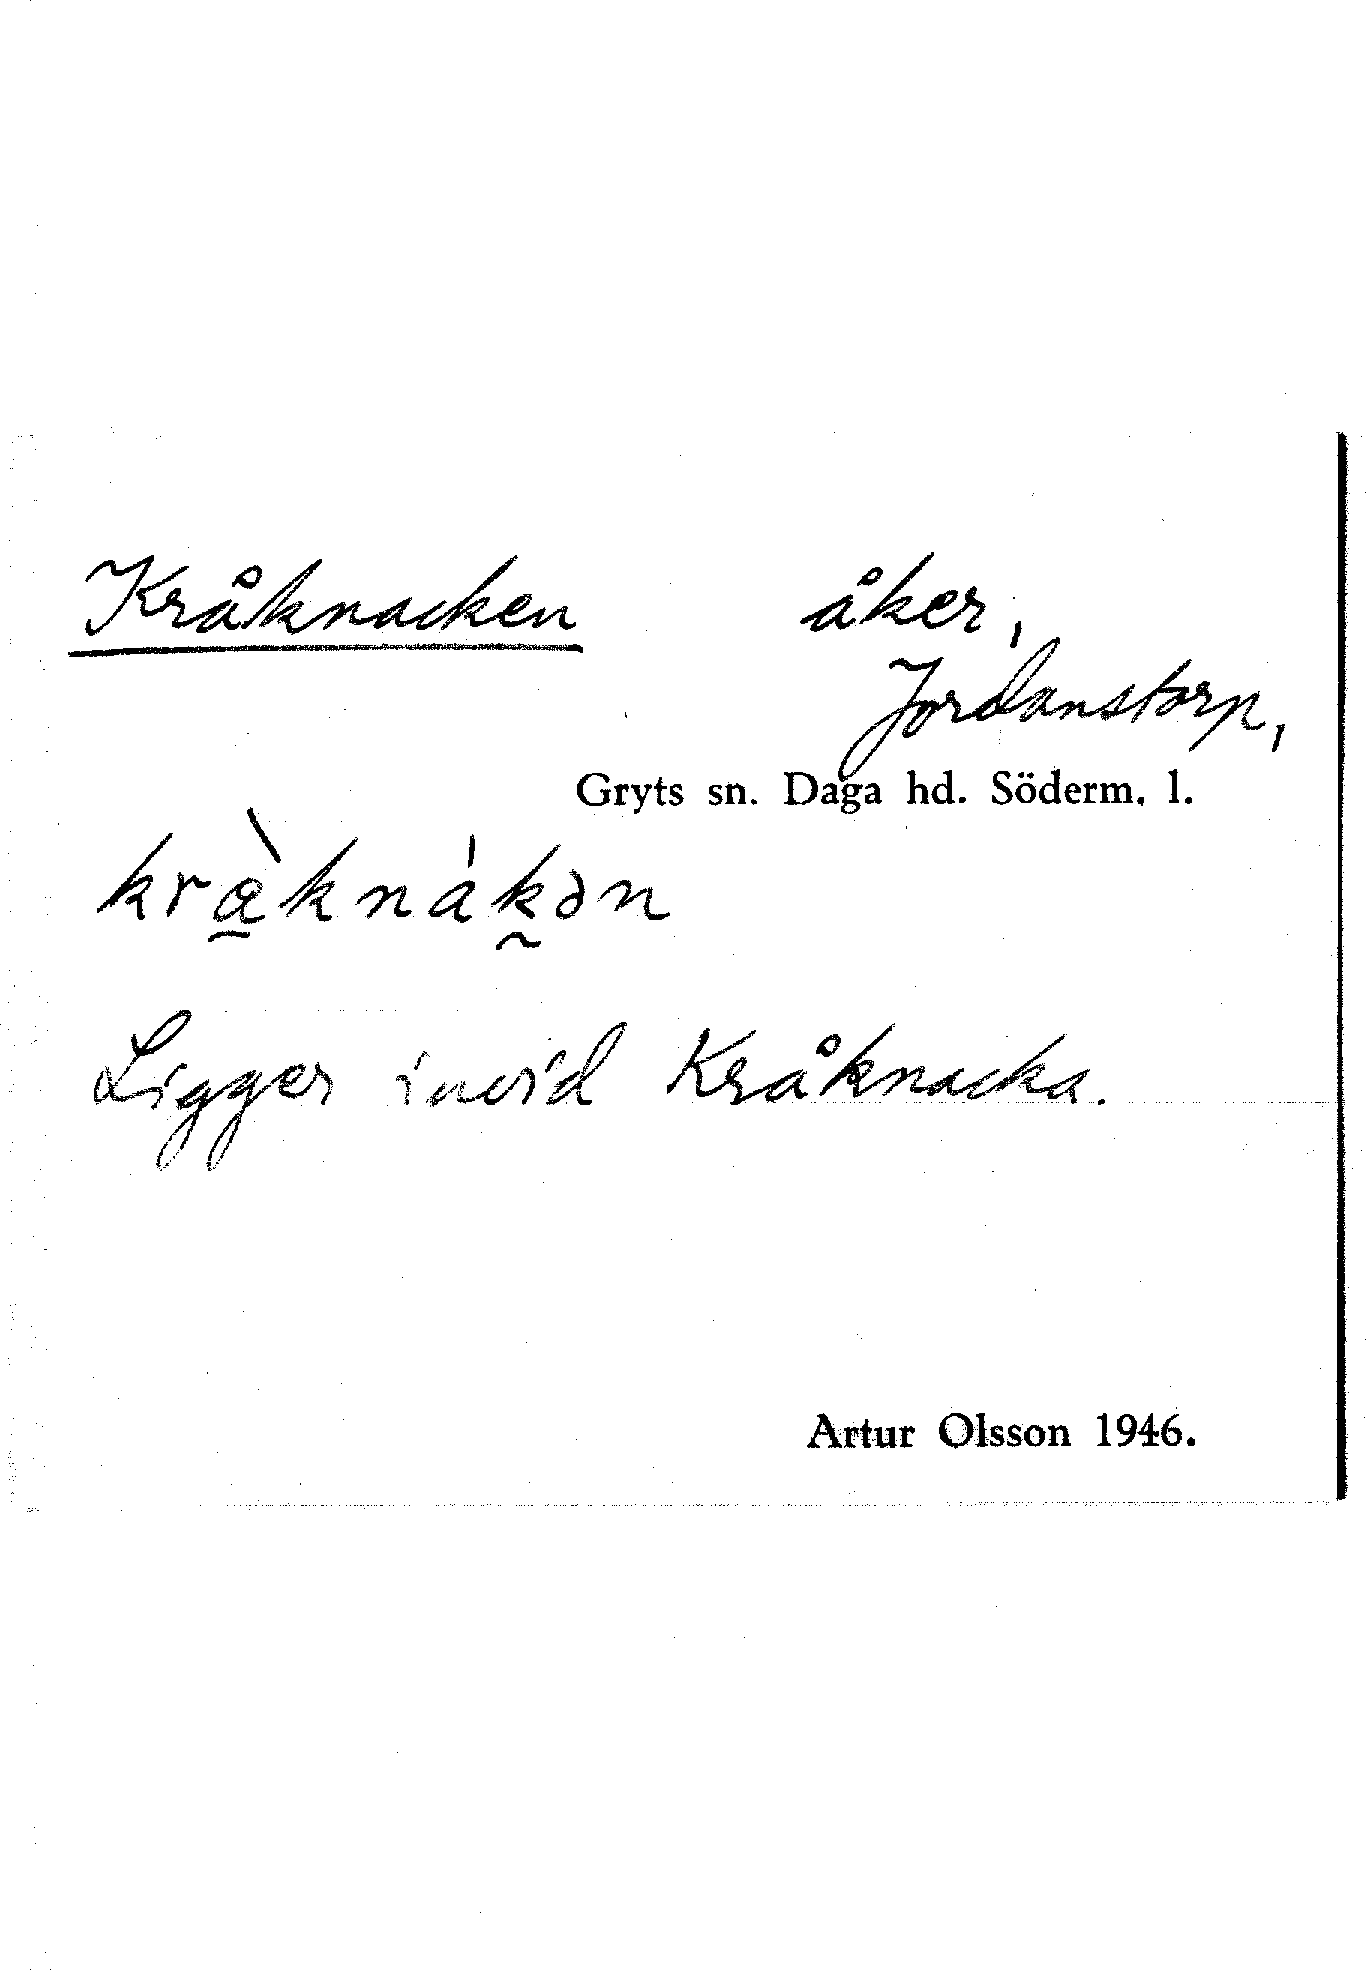 Kråknacken åker,
Jordanstorp,
Gryts sn. Daga hd. Söderm. l.
kràknákən
Ligger invid Kråknacka.
Artur Olsson 1946.